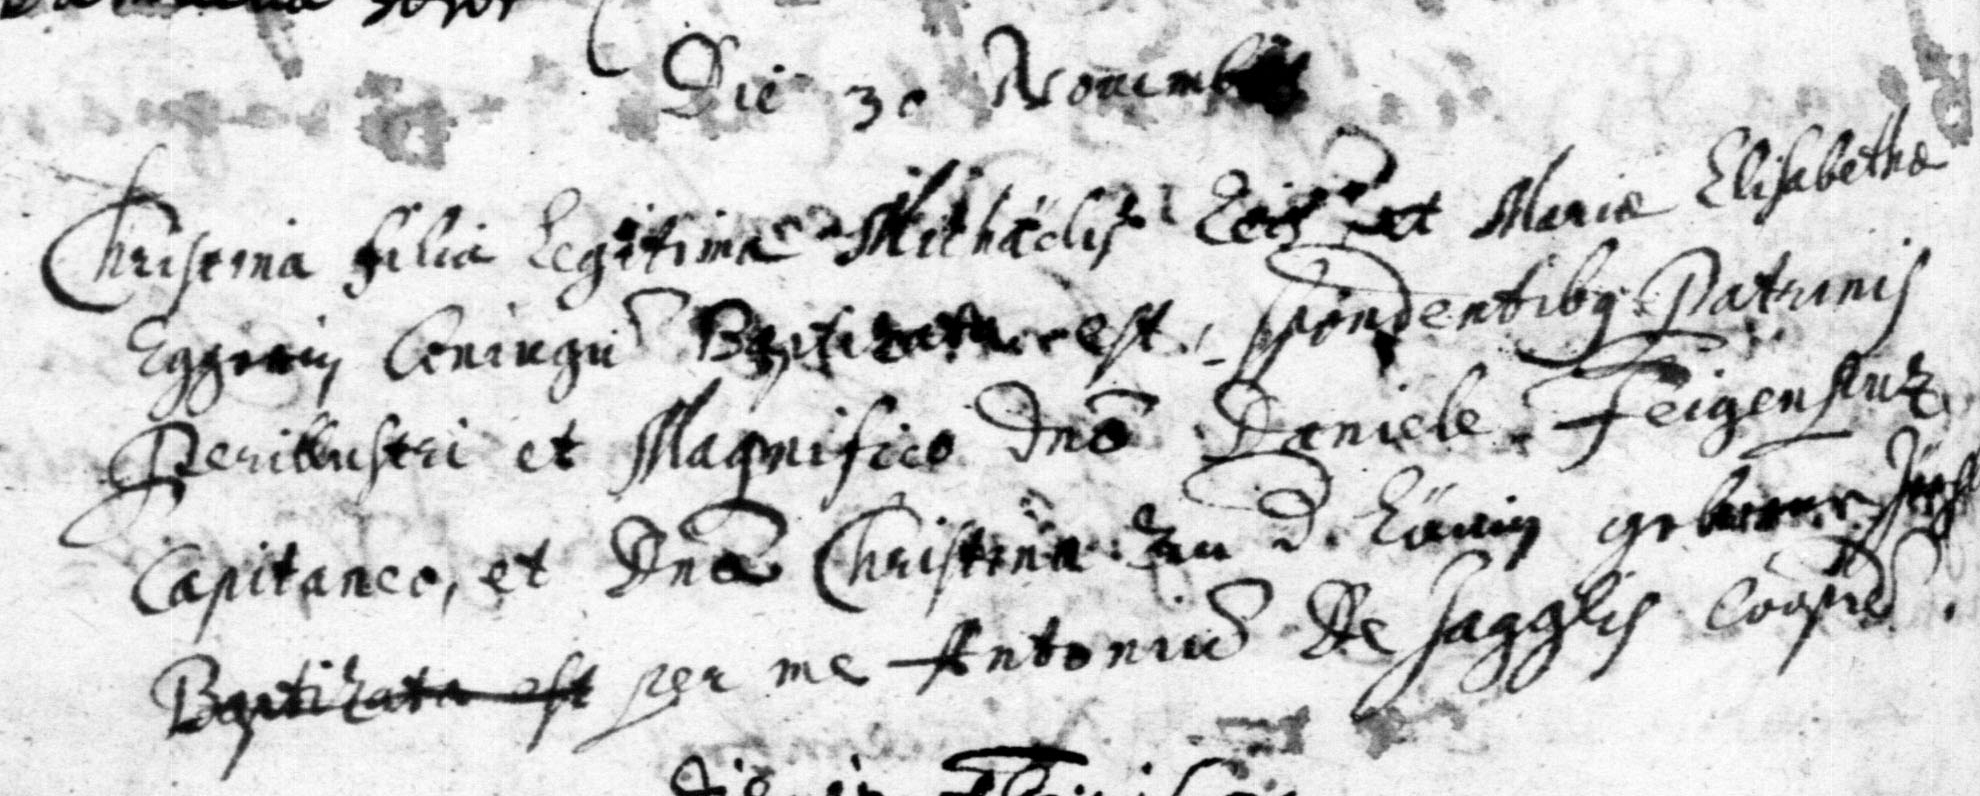 Die 30 Novemb
Christina filia Legitima Michäelis et Mariæ Elisabethæ
Eggerin Coniugū Baptizata est, spondentibq Patrinis
Perillustri et Magnifico Dnō Daniele Feigenputz
Capitaneo, et Dnā Christina zu D.
Baptizata est per me Antoniū De Jagglis Coopr̄e.